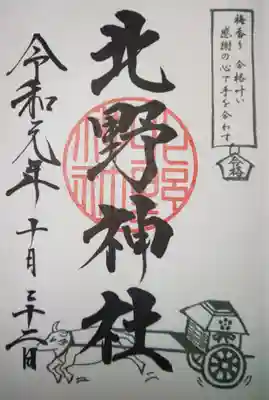 梅香り 合格叶い
感謝の心で手を合わす
合格
北野神社
令和元年 十月 二十二日